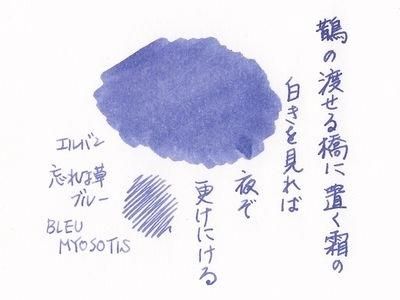 鵲の渡せる橋に置く霜の
白きを見れば
夜ぞ
更けにける
エルバン
忘れな草
ブルー
BLEU
MYOSOTIS